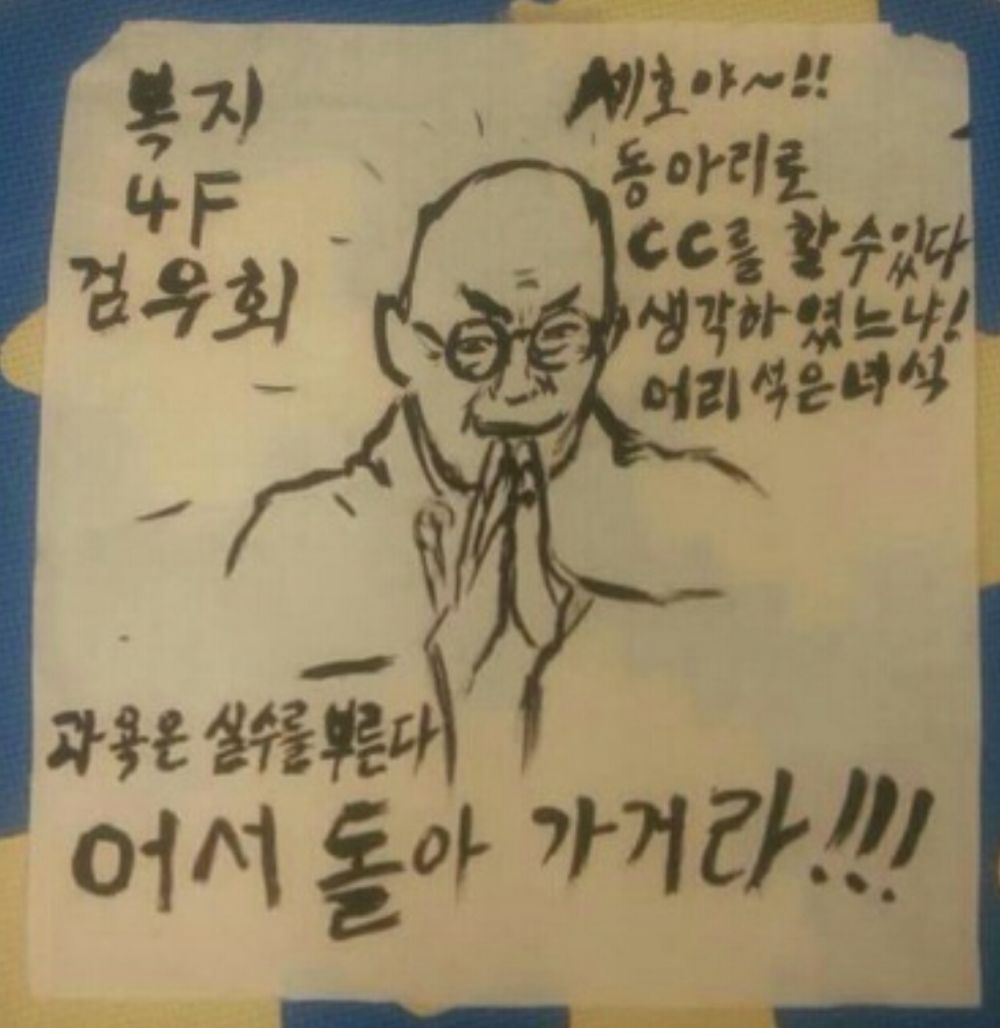 복지
4F
검우회
세호야~!!
동아리로
CC를 할 수 있다
생각하였느냐!
어리석은 녀석
과욕은 실수를 부른다
어서 돌아 가거라!!!